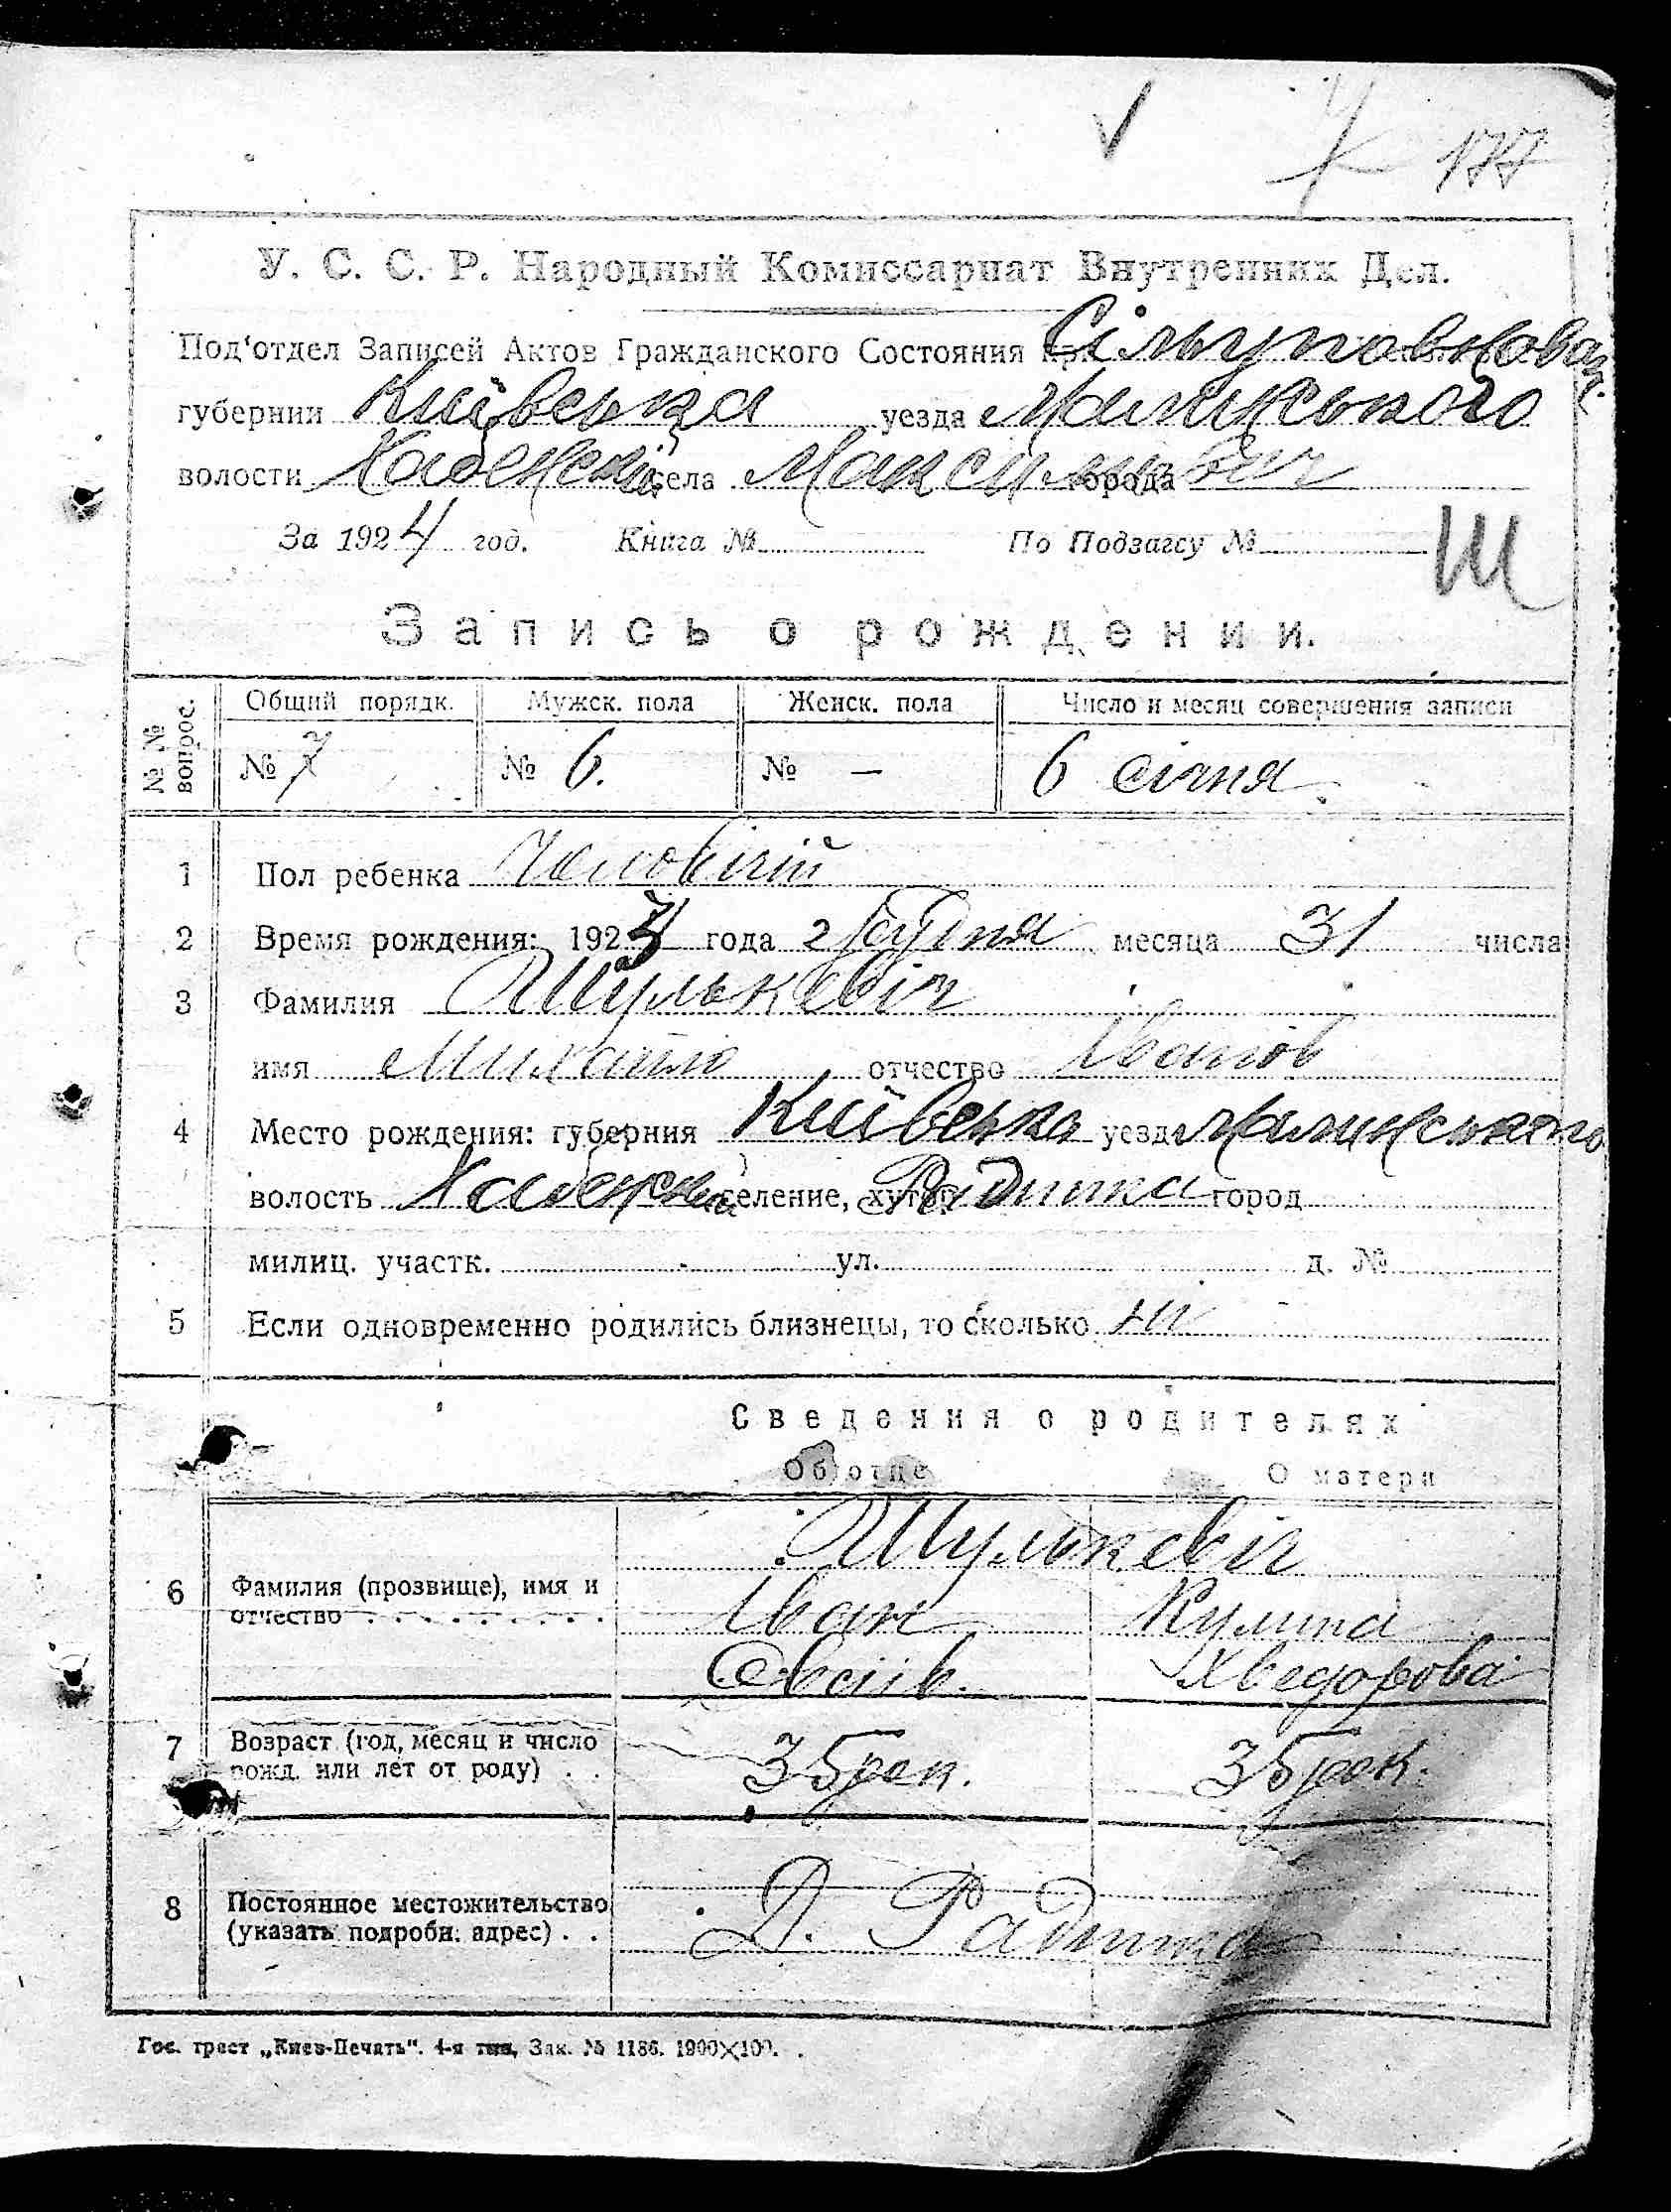 177
У. С. С. Р. Народный Комиссариат Внутренних Дел.
Под'отдел Записей Актов Гражданского Состояния при
губернии Київська уезда Малинського
волости Хабенської села Максимович города
За 1924 год. Книга № По Подзагсу №
Ш
Запись о рождении.
№№ вопрос. Общий порядк. Мужск. пола Женск. пола Число и месяц совершения записи
№ 7 № 6. № — 6 січня
1 Пол ребенка Чоловічій
2 Время рождения: 1923 года грудня месяца 31 числа
3 Фамилия Шулькевіч
имя Михайло отчество Іванов
4 Место рождения: губерния Київська уезд Малинського
волость Хабенской селение, хутор Радинка город
милиц. участк. ул. д. №
5 Если одновременно родились близнецы, то сколько ні
Сведения о родителях
Об отце О матери
Шулькевіч
6 Фамилия (прозвище), имя и отчество Іван Кулина
Овсіів. Хведорова
7 Возраст (год, месяц и число рожд. или лет от роду) 35 рок. 35 рок.
8 Постоянное местожительство (указать подробн. адрес) Д. Радинка
Гос. трест „Киев-Печать“. 4-я тип, Зак. № 1186. 1900×100.